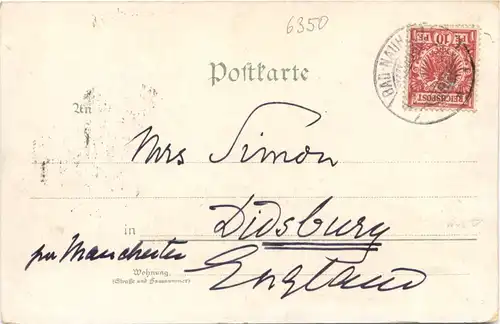 6350
BAD-NAUH
10 PF 10 PF
REICHSPOST
Postkarte
An
Mrs Simon
in Didsbury
per Manchester
England
Wohnung
(Straße und Hausnummer)